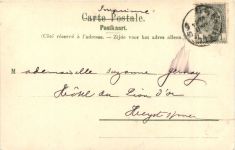 Imprimé
Carte Postale.
Postkaart.
(Côté réservé à l'adresse. — Zijde voor het adres alleen.)
Mademoiselle Suzanne
Hôtel du Lion d'Or
Heyst s/mer